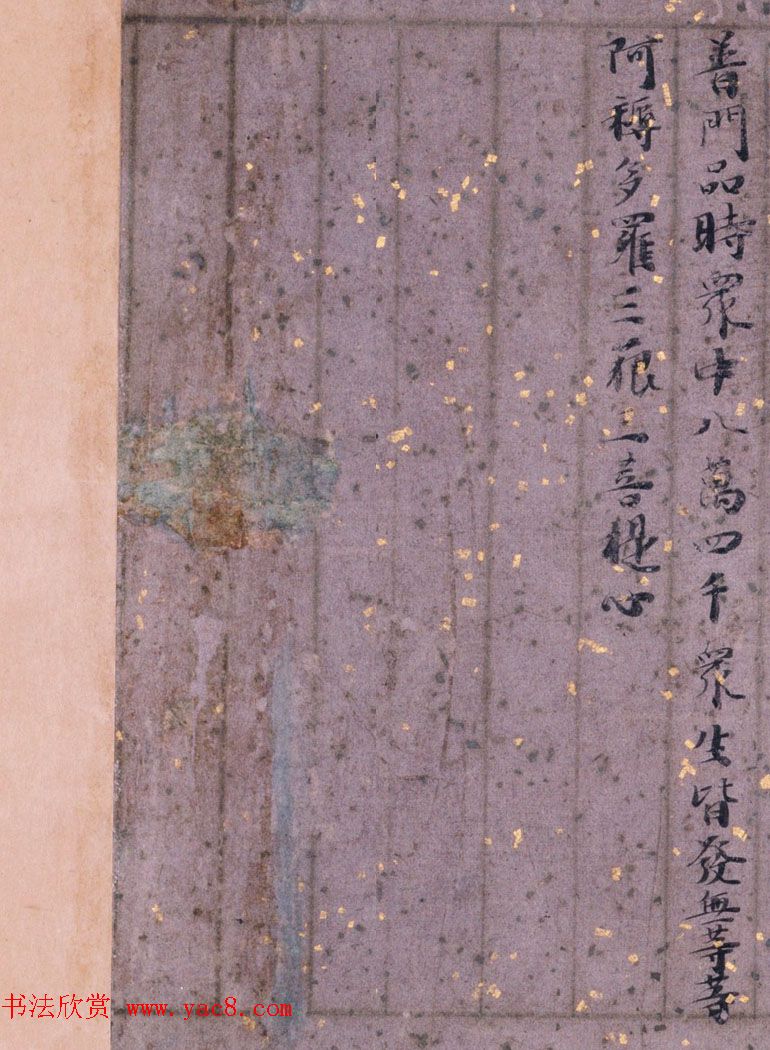 普門品時眾中八萬四千眾生皆發無等等
阿耨多羅三藐三菩提心
书法欣赏 www.yac8.com